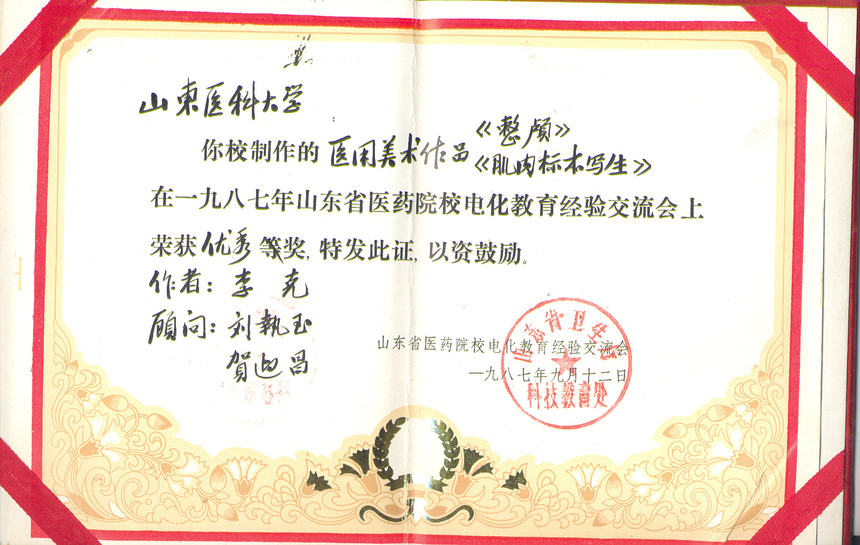 山東医科大学
你校制作的医用美术作品《整颅》
《肌肉标本写生》
在一九八七年山东省医药院校电化教育经验交流会上
荣获优秀等奖,特发此证,以资鼓励。
作者:李克
顾问:刘執玉
賀
昌
山东省医药院校电化教育经验交流会
一九八七年九月十二日
山东省卫生厅
科技教育处